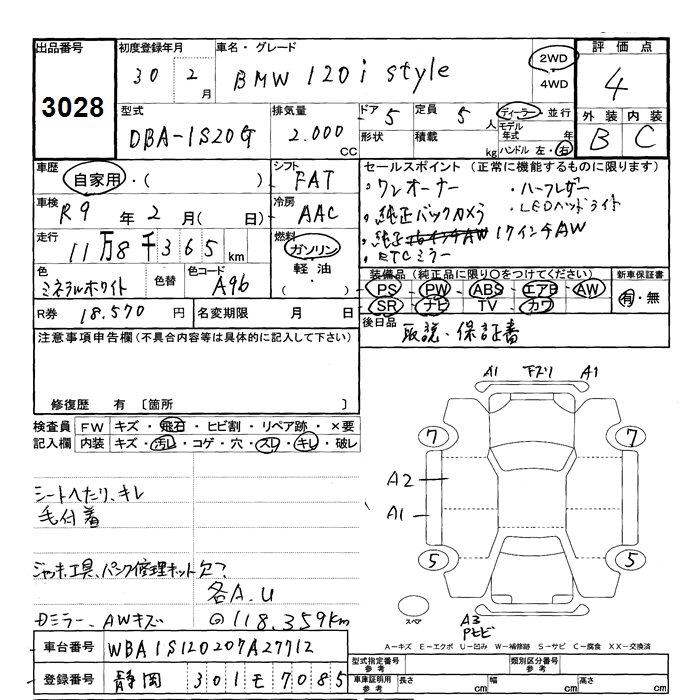 出品番号 初度登録年月 車名・グレード 評価点
3028 30 2月 BMW 120i style 2WD 4WD 4
型式 排気量 ドア 5 定員 5人 ディーラー・並行 外装 内装
DBA-1S20G 2.000cc 形状 積載 kg モデル年式 年 ハンドル 左・右 B C
車歴 シフト セールスポイント(正常に機能するものに限ります)
自家用・( ) FAT ・ワンオーナー ・ハーフレザー
車検 R9年2月( 日) 冷房 AAC ・純正バックカメラ ・LEDヘッドライト
走行 11万8千365km 燃料 ガソリン 軽油 ( ) ・純正 17インチAW
・ETCミラー
色 ミネラルホワイト 色替 色コード A96 装備品(純正品に限り○をつけてください) 新車保証書
PS PW ABS エアB AW 有・無
SR ナビ TV カワ
R券 18.570円 名変期限 月 日 後日品 取説・保証書
注意事項申告欄(不具合内容等は具体的に記入して下さい)
修復歴 有 〔箇所 〕
検査員 FW キズ・飛石・ヒビ割・リペア跡・×要
記入欄 内装 キズ・汚レ・コゲ・穴・スレ・キレ・破レ
シートヘたり、キレ
毛付着
ジャッキ、工具、パンク修理キット欠?
各A.U
Dミラー、AWキズ ◎118.359km
A1 下ズリ A1
7 7
A2
A1
5 5
スペア A3
Pヒビ
A-キズ E-エクボ U-凹み W-補修跡 S-サビ C-腐食 XX-交換済
車台番号 WBA1S120207A27712
登録番号 静岡 301モ7085
型式指定番号 参考 類別区分番号 参考
車庫証明用 参考 長さ cm 幅 cm 高さ cm